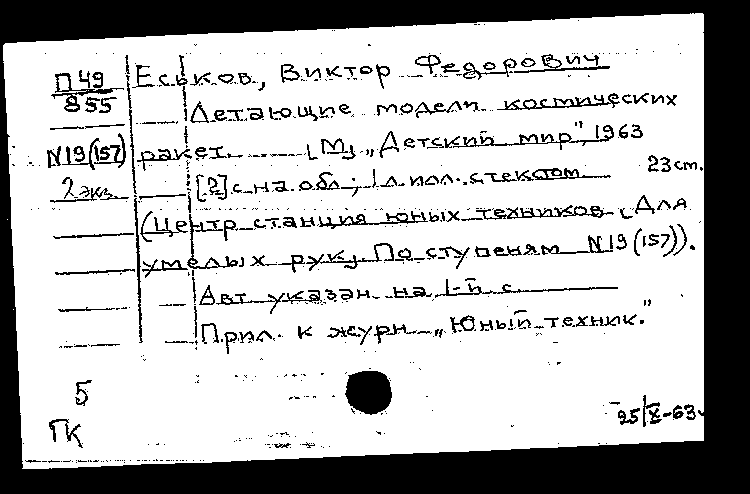 П 49 Еськов, Виктор Федорович
855 Летающие модели космических
N19(157) ракет. [М], „Детский мир", 1963
2 экз. [2] с на обл; 1 л. илл. с текстом. 23 см.
(Центр станция юных техников. [Для
умелых рук]. По ступеням N19 (157)).
Авт указан на 1-й с.
Прил. к журн. „Юный техник."
5
ГК
25/X-63.